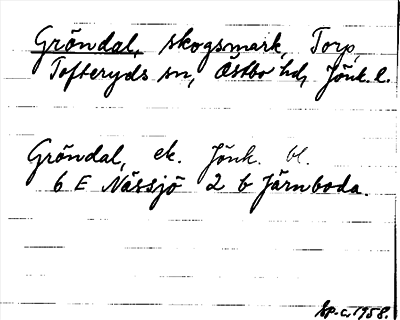 Gröndal, skogsmark, Torp,
Tofteryds sn, Östbo hd, Jönk. l.
Gröndal, ek. Jönk. bl.
6 E Nässjö 2 b Järnboda.
Ep.c. 1958.